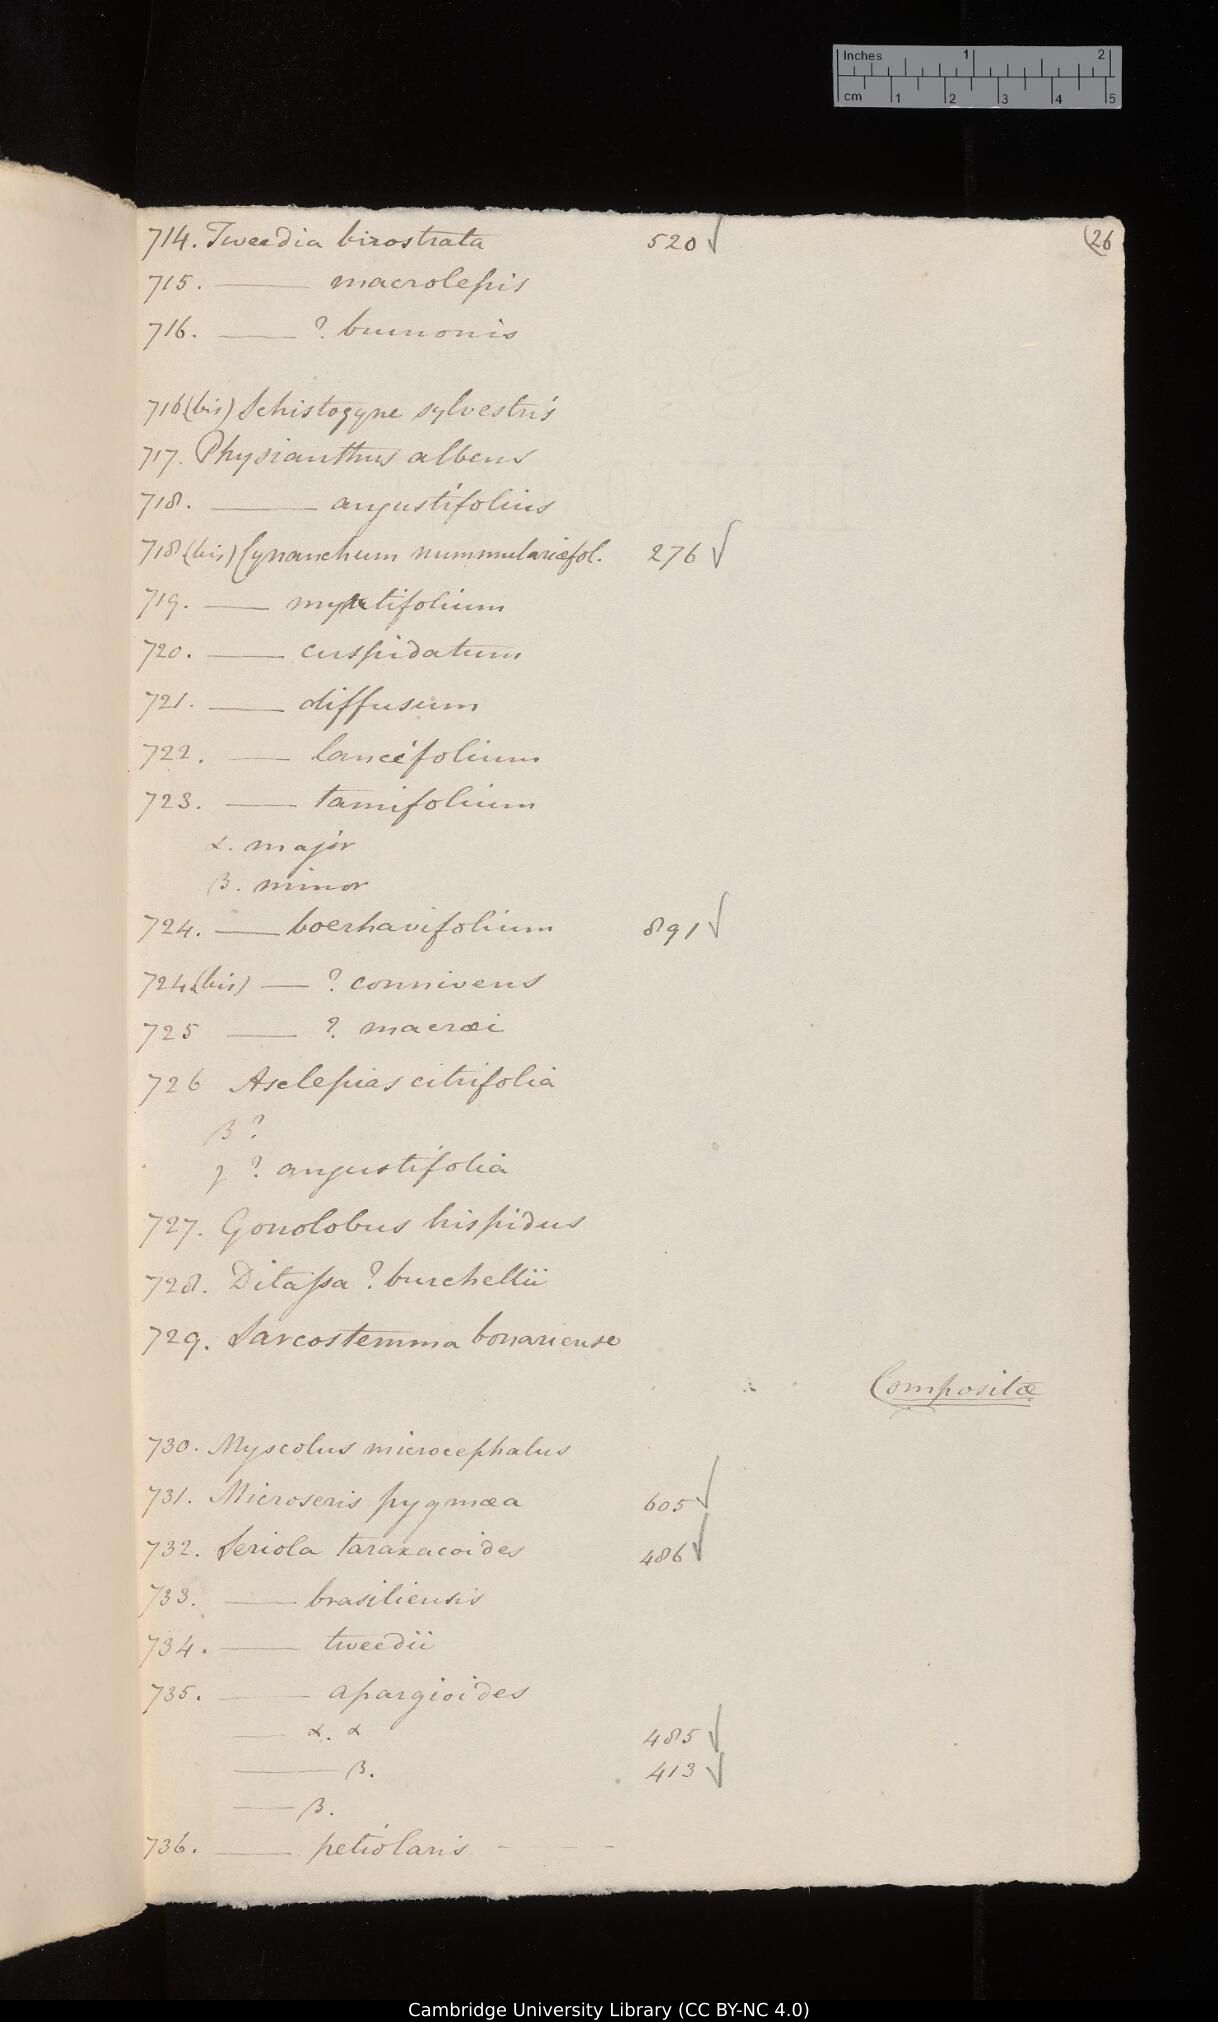 Inches 1 2
cm 1 2 3 4 5
(26
714. Tweedia birostrata 520 √
715. —— macrolepis
716. —— ? brunonis
716(bis) Schistogyne sylvestris
717. Physianthus albens
718. —— angustifolius
718(bis) Cynanchum nummulariæfol. 276 √
719. —— myrtifolium
720. —— cuspidatum
721. —— diffusum
722. —— lancifolium
723. —— tamifolium
α. major
β. minor
724. —— boerhavifolium 891 √
724(bis) —— ? connivens
725 —— ? macræi
726 Asclepias citrifolia
β ?
γ ? angustifolia
727. Gonolobus hispidus
728. Ditassa ? burchellii
729. Sarcostemma bonariense
Compositæ
730. Myscolus microcephalus
731. Microseris pygmæa 605 √
732. Seriola taraxacoides 486 √
733. —— brasiliensis
734. —— tweedii
735. —— apargioides
—— α. α 485 √
—— β. 413 √
—— β.
736. —— petiolaris — —
Cambridge University Library (CC BY-NC 4.0)